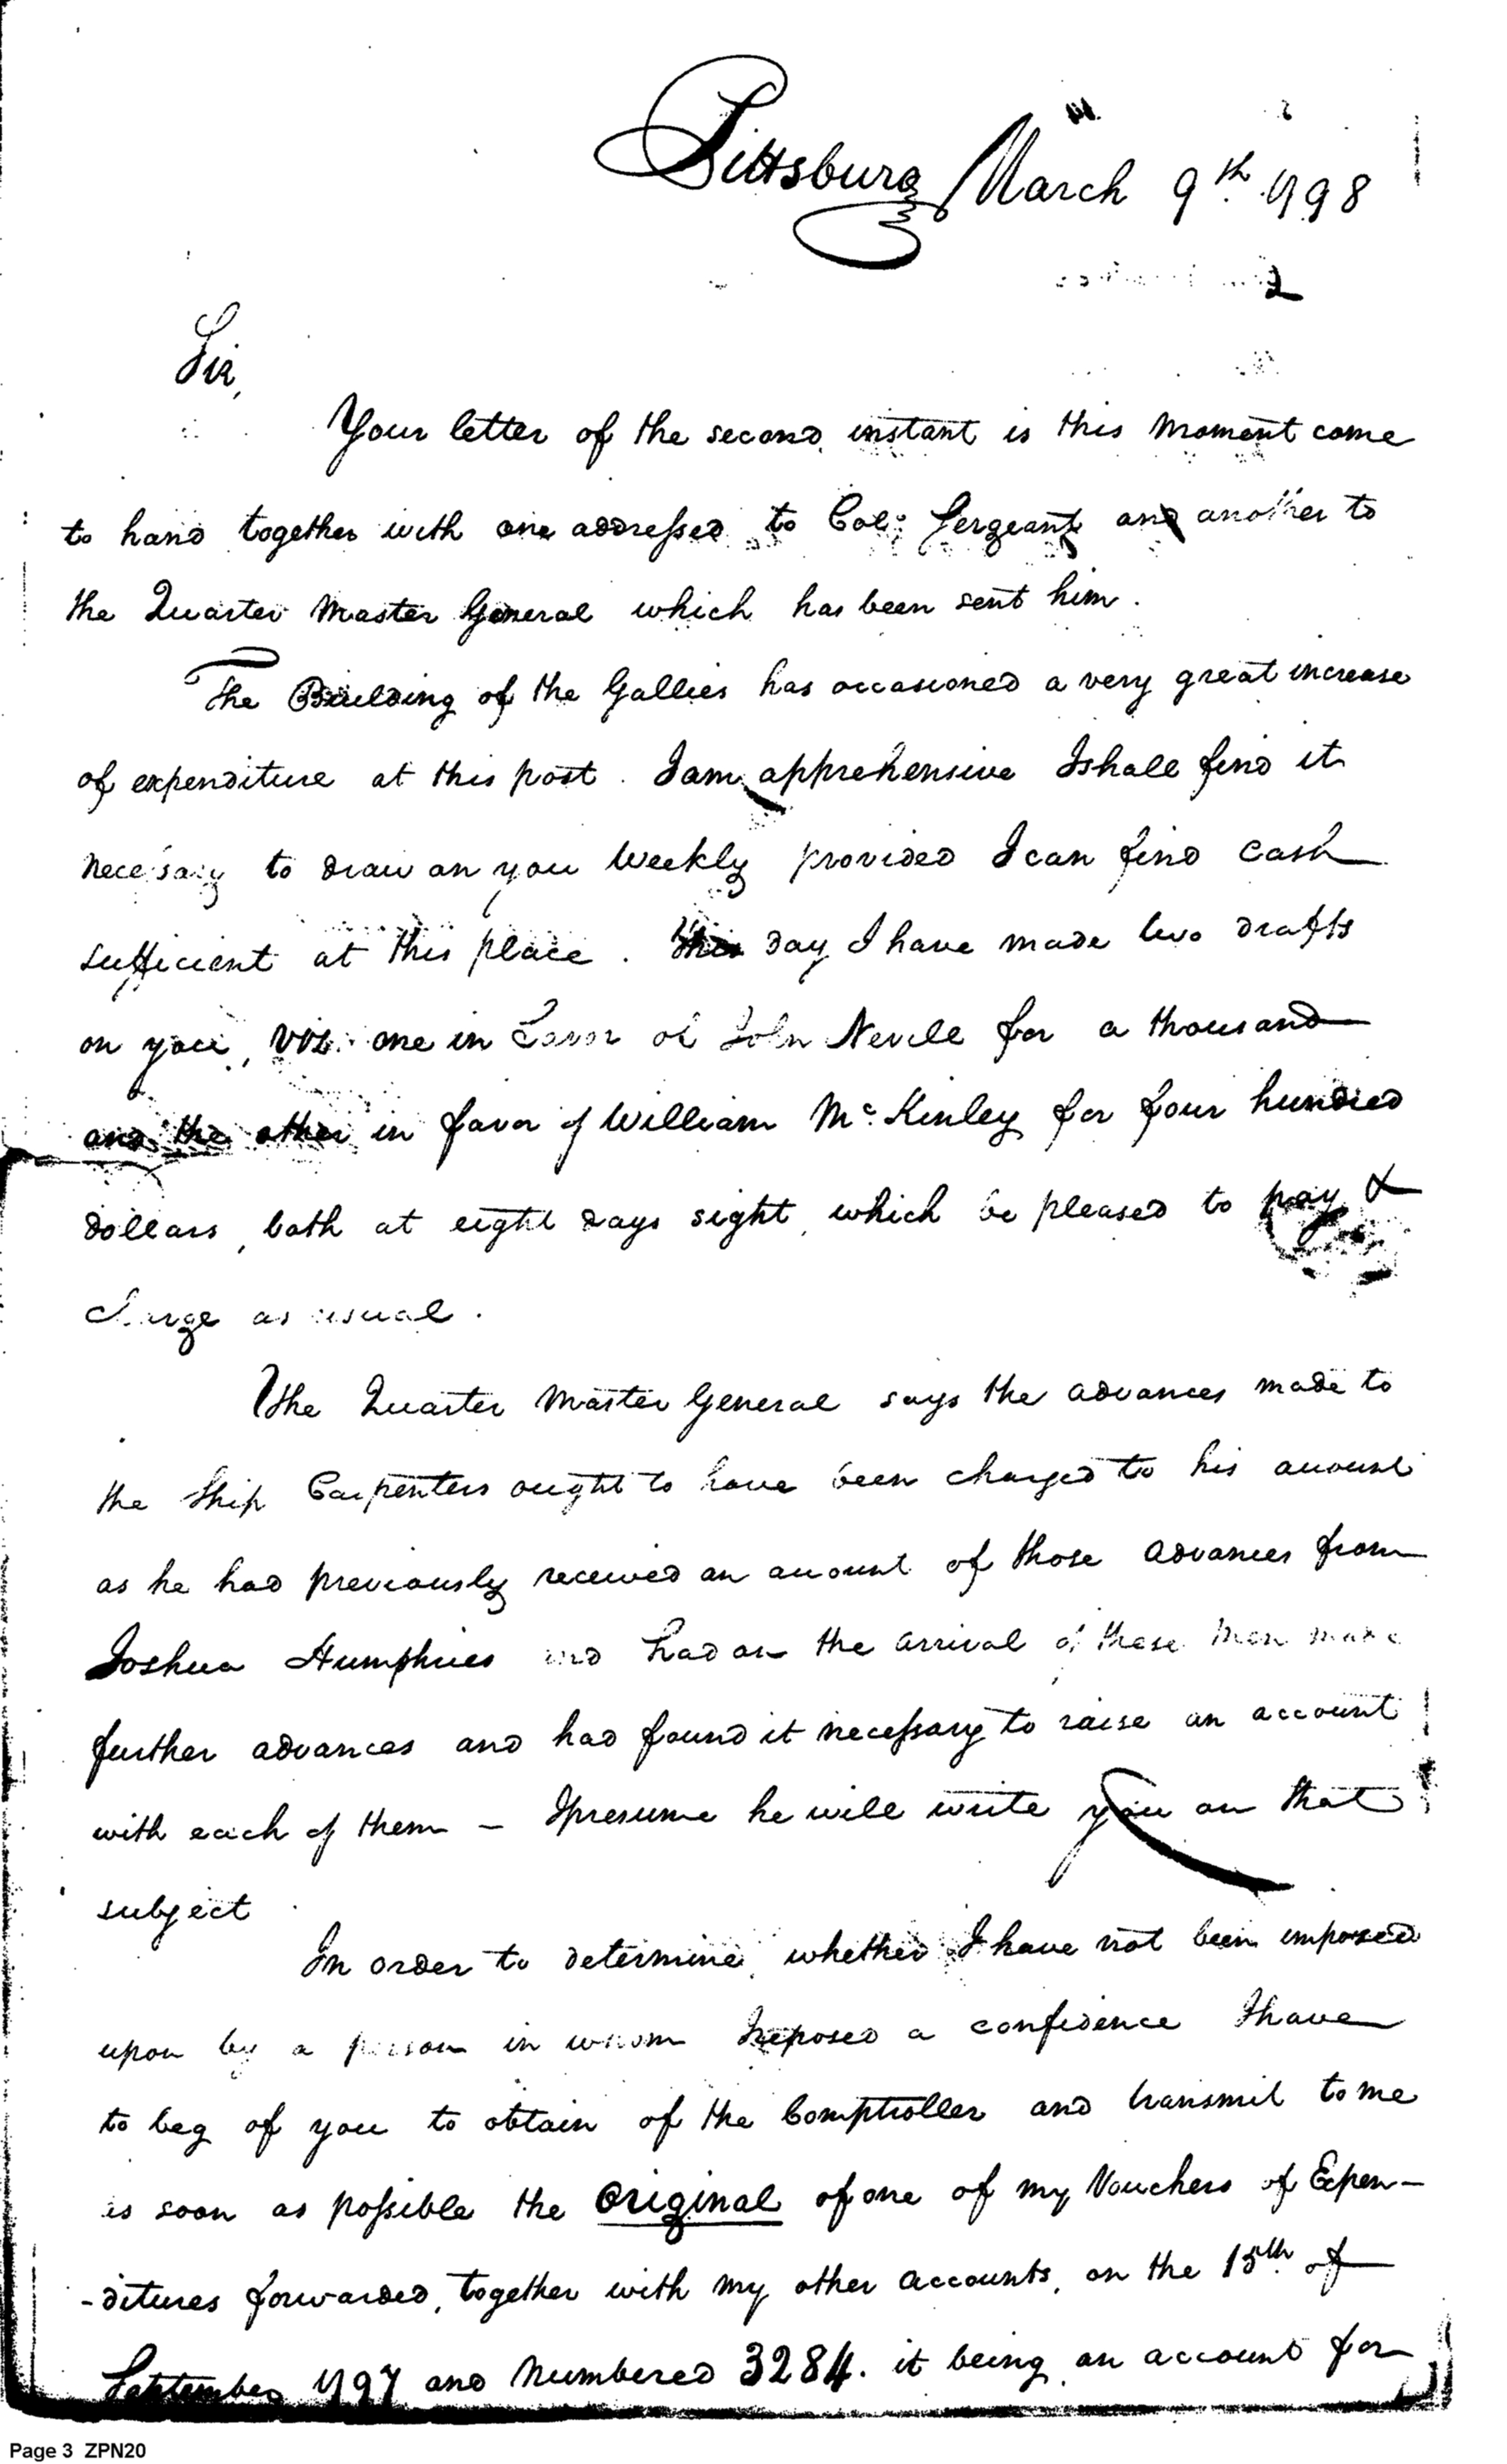 Pittsburg March 9th. 1798
Sir,
Your letter of the second instant is this Moment come
to hand together with one addressed to Col: Sergeant and another to
the Quarter Master General which has been sent him.
The Building of the Gallies has occasioned a very great increase
of expenditure at this post. I am apprehensive I shall find it
necessary to draw on you Weekly provided I can find Cash
sufficient at this place. This day I have made two drafts
on you, viz: one in Favor of John Nevill for a thousand
and the other in favor of William McKinley for four hundred
dollars, both at eight days sight, which be pleased to pay &
charge as usual.
The Quarter Master General says the advances made to
the Ship Carpenters ought to have been charged to his account
as he had previously received an account of those advances from
Joshua Humphries and had on the arrival of these Men made
further advances and had found it necessary to raise an account
with each of them – I presume he will write you on that
subject
In order to determine, whether I have not been imposed
upon by a person in whom I reposed a confidence I have
to beg of you to obtain of the Comptroller and transmit to me
as soon as possible the Original of one of my Vouchers of Expen-
-ditures forwarded, together with my other accounts, on the 15th. of
September 1797 and Numbered 3284. it being an account for
Page 3 ZPN20